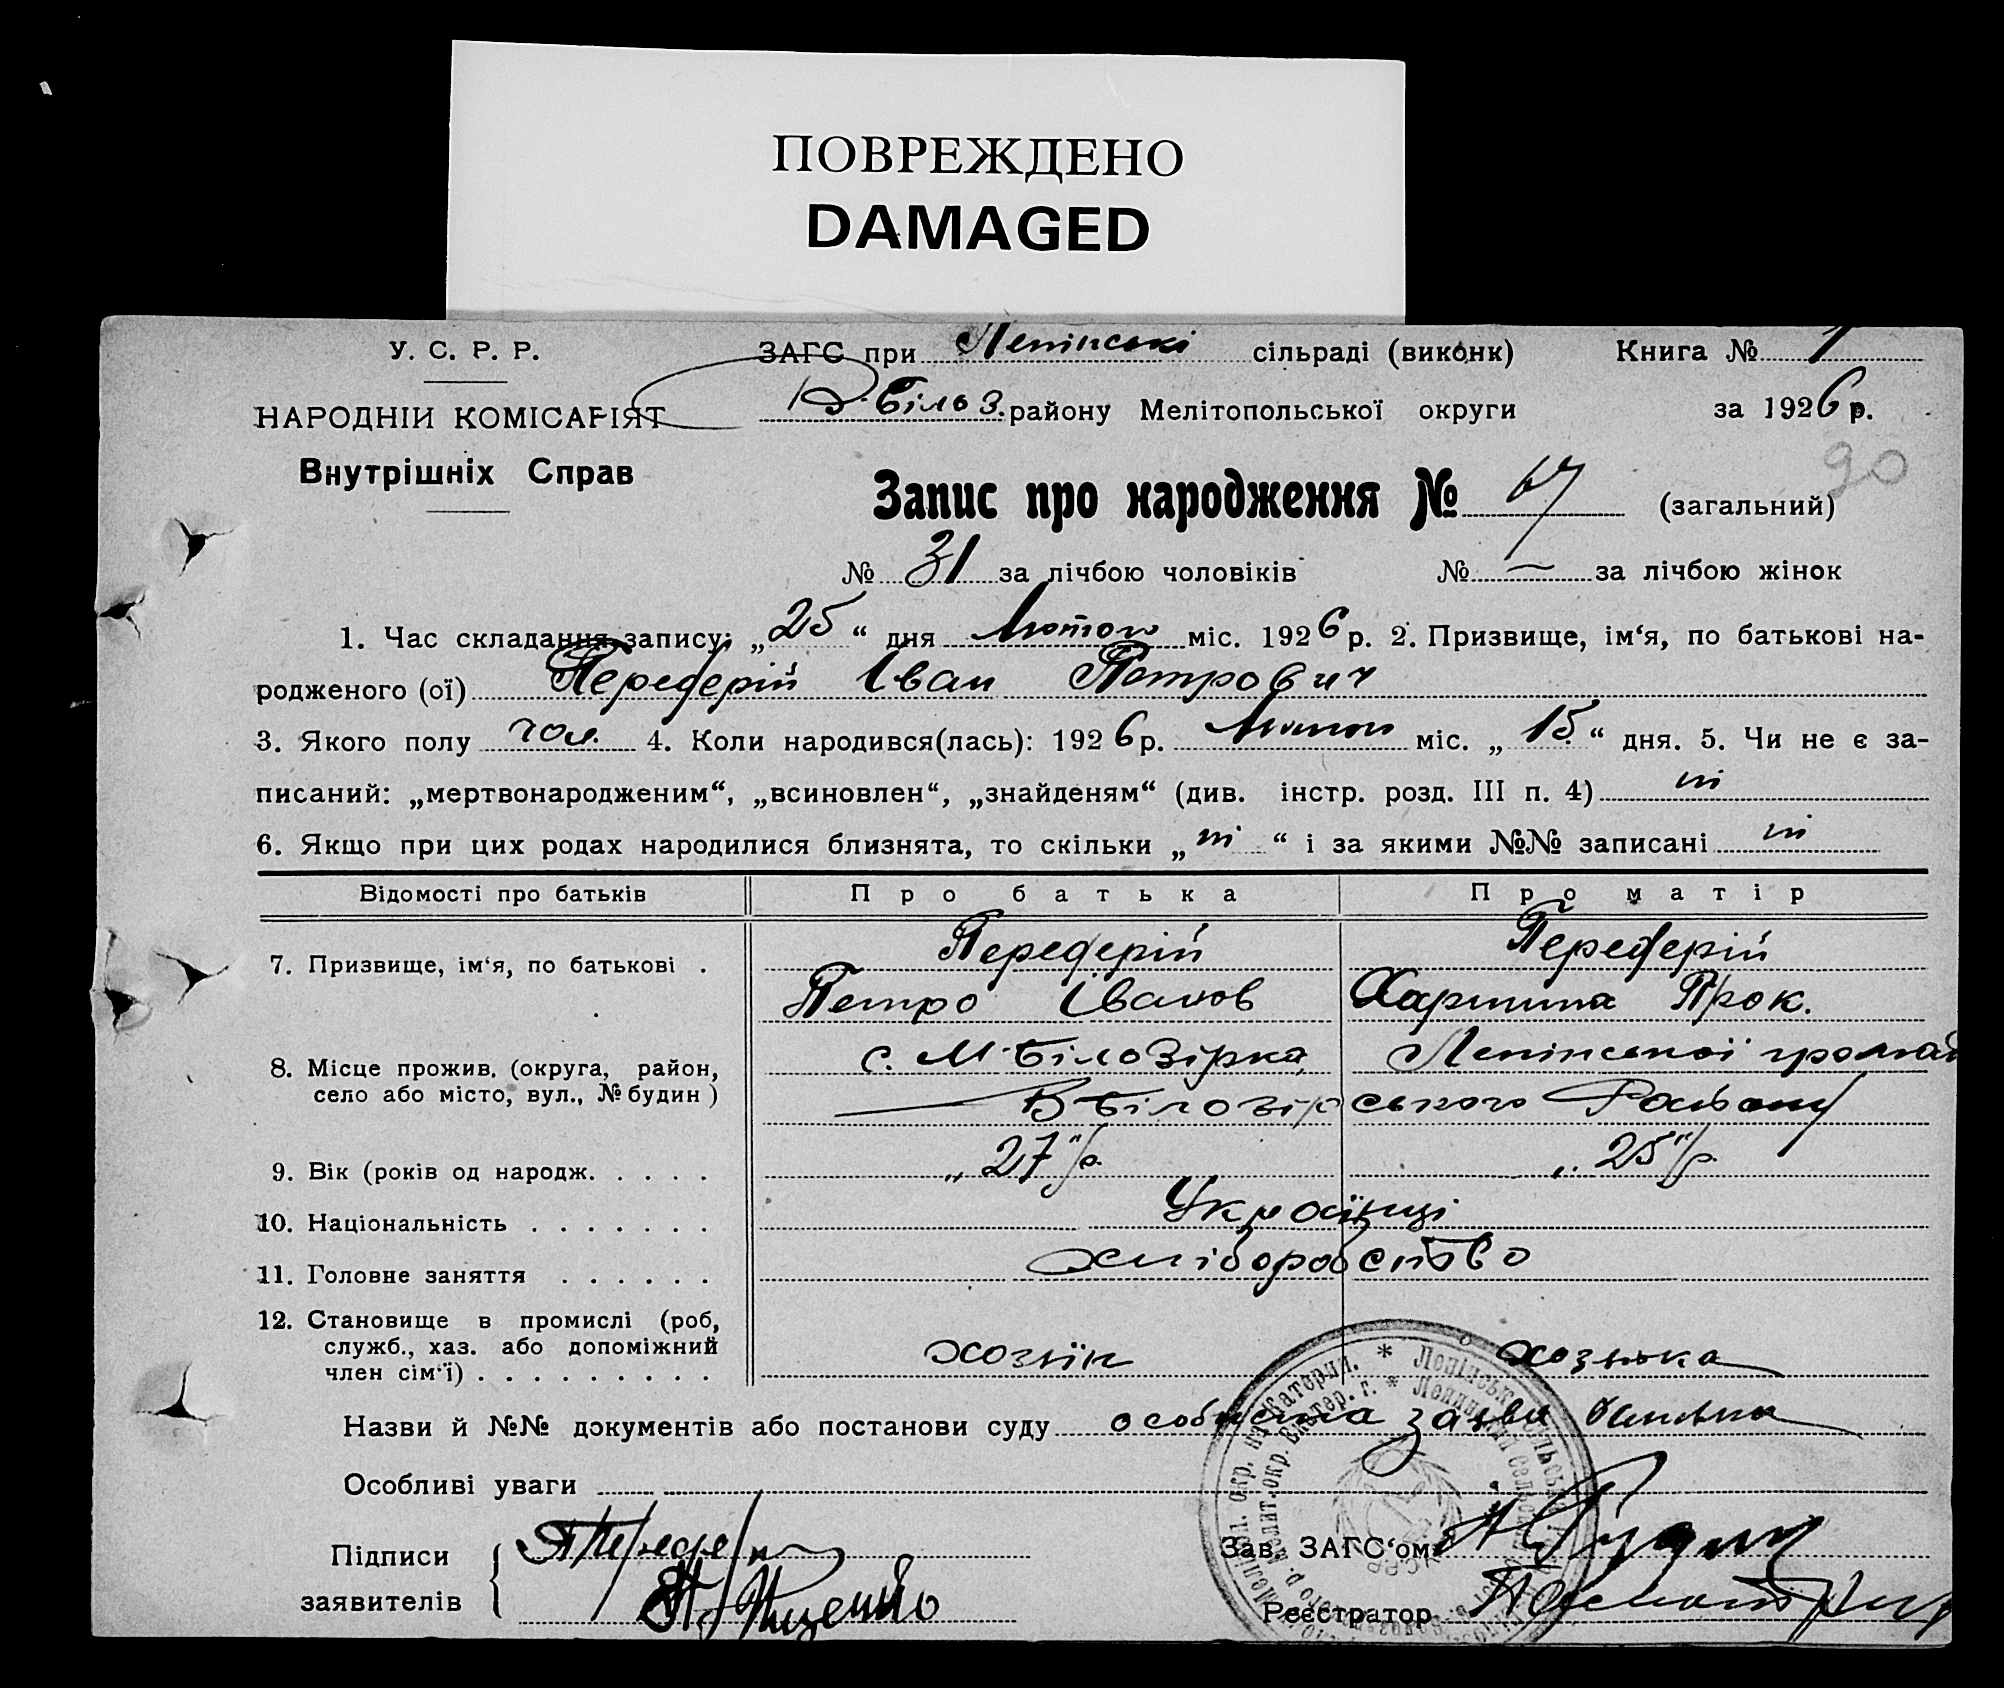 ПОВРЕЖДЕНО
DAMAGED
У. С. Р. Р.
ЗАГС при Ленінські сільраді (виконк) Книга № 1
В-Білоз. району Мелітопольської округи за 1926 р.
НАРОДНІЙ КОМІСАРІЯТ
Внутрішніх Справ
90
Запис про народження № 67 (загальний)
№ 31 за лічбою чоловіків № — за лічбою жінок
1. Час складання запису: „25“ дня Лютого міс. 1926 р. 2. Призвище, ім‘я, по батькові на-
родженого (ої) Передерій Іван Петрович
3. Якого полу чол. 4. Коли народився(лась): 1926 р. Лютого міс. „15“ дня. 5. Чи не є за-
писаний: „мертвонародженим“, „всиновлен“, „знайденям“ (див. інстр. розд. III п. 4) ні
6. Якщо при цих родах народилися близнята, то скільки „ні“ і за якими №№ записані ні
Відомості про батьків Про батька Про матір
7. Призвище, ім‘я, по батькові . Передерій Передерій
Петро Іванов Харитина Прок.
8. Місце прожив. (округа, район, с. М-Білозірка, Ленінської громад
село або місто, вул., № будин) В Білозірського Району
9. Вік (років од народж. . . . . „27“ р. „25“ р.
10. Національність . . . . . . . Українці
11. Головне заняття . . . . . . Хліборобство
12. Становище в промислі (роб,
служб., хаз. або допоміжний хозяїн хозяька
член сім‘ї) . . . . . . . . .
Назви й №№ документів або постанови суду особиста заява батька
Особливі уваги
Підписи
Зав. ЗАГС‘ом
заявителів
Реєстратор